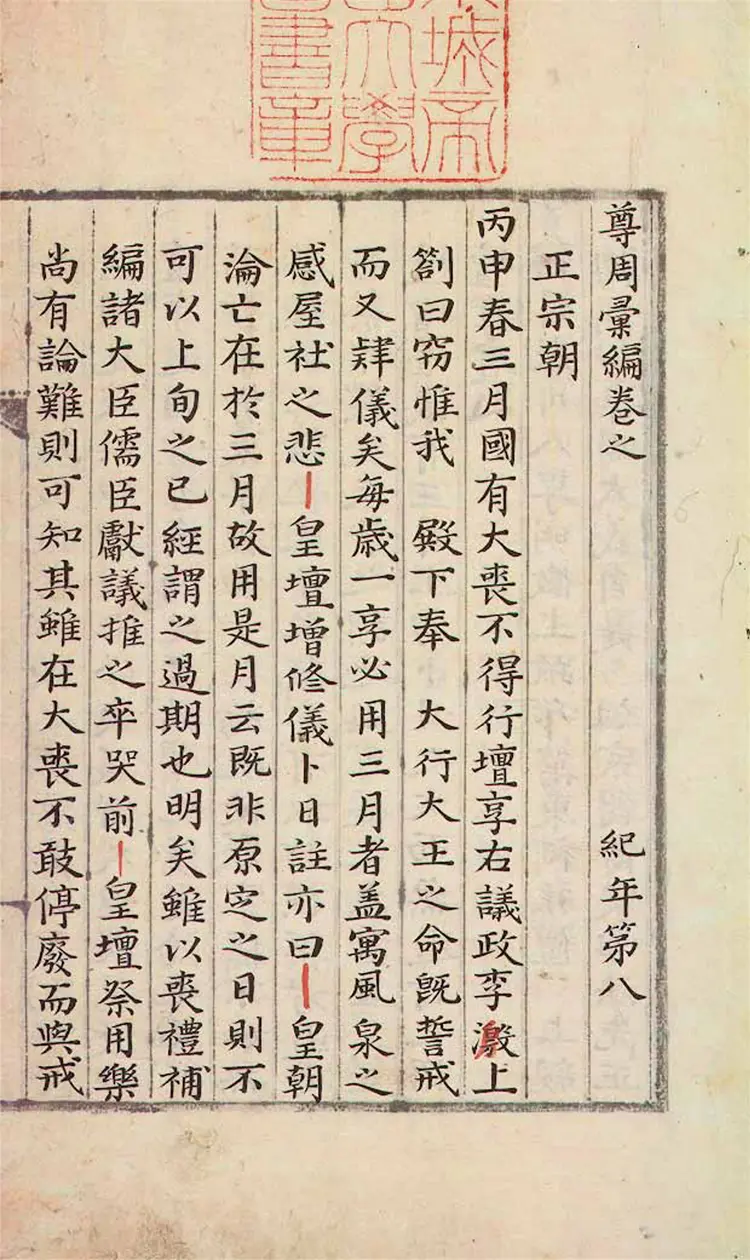 城帝
大學
書章
尊周彙編卷之 紀年第八
正宗朝
丙申春三月國有大喪不得行壇享右議政李溵上
劄曰窃惟我 殿下奉 大行大王之命既誓戒
而又肄儀矣每歲一享必用三月者盖寓風泉之
感屋社之悲 皇壇增修儀卜日註亦曰 皇朝
淪亡在於三月故用是月云既非原㝎之日則不
可以上旬之已經謂之過期也明矣雖以喪禮補
編諸大臣儒臣獻議推之卒哭前 皇壇祭用樂
尚有論難則可知其雖在大喪不敢停廢而與戒